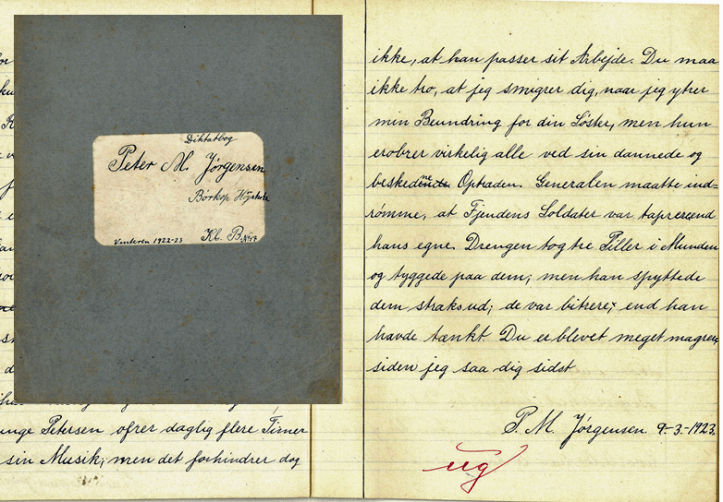 Diktatbog
Peter M. Jørgensen
Børkop Højskole
Vinteren 1922-23 Kl. B. No 17
unge Petersen ofrer daglig flere Timer
sin Musik; men det forhindrer dog
ikke, at han passer sit Arbejde. Du maa
ikke tro, at jeg smigrer dig, naar jeg ytrer
min Beundring for din Søster, men hun
erobrer virkelig alle ved sin dannede og
beskedne Optræden. Generalen maatte ind-
rømme, at Fjendens Soldater var taprere end
hans egne. Drengen tog tre Piller i Munden
og tyggede paa dem; men han spyttede
dem straks ud; de var bitrere, end han
havde tænkt. Du er blevet meget magrere,
siden jeg saa dig sidst
P. M. Jørgensen 9-3-1923.
ug